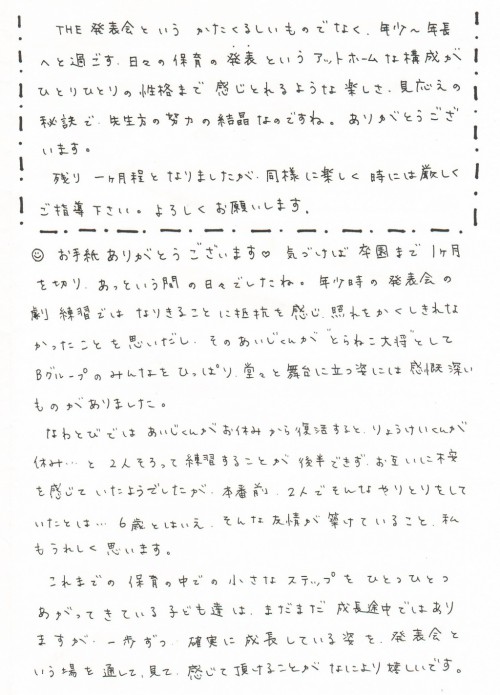 THE 発表会という かたくるしいものでなく、年少〜年長
へと過ごす、日々の保育の発表というアットホームな構成が
ひとりひとりの性格まで感じとれるような楽しさ、見応えの
秘訣で、先生方の努力の結晶なのですね。ありがとうござ
います。
残り 一ヶ月程となりましたが、同様に楽しく 時には厳しく
ご指導下さい。よろしくお願いします。
☺ お手紙ありがとうございます♡ 気づけば 卒園まで 1ヶ月
を切り、あっという間の日々でしたね。年少時の 発表会の
劇 練習では なりきることに抵抗を感じ、照れをかくしきれな
かったことを思いだし、そのあいじくんが“とらねこ大将”として
Bグループのみんなをひっぱり、堂々と舞台に立つ姿には 感慨深い
ものがありました。
なわとびでは あいじくんがお休みから復活すると、りょうけいくんが
休み… と 2人そろって練習することが 後半できず、お互いに不安
を感じていたようでしたが、本番前、2人でそんなやりとりをして
いたとは… 6歳とはいえ、そんな友情が築けていること、私
もうれしく思います。
これまでの 保育の中での 小さな ステップを ひとつひとつ
あがってきている子ども達は、まだまだ 成長途中ではあり
ますが、一歩ずつ 確実に成長している姿を、発表会と
いう場を通して、見て、感じて頂けることがなにより嬉しいです。